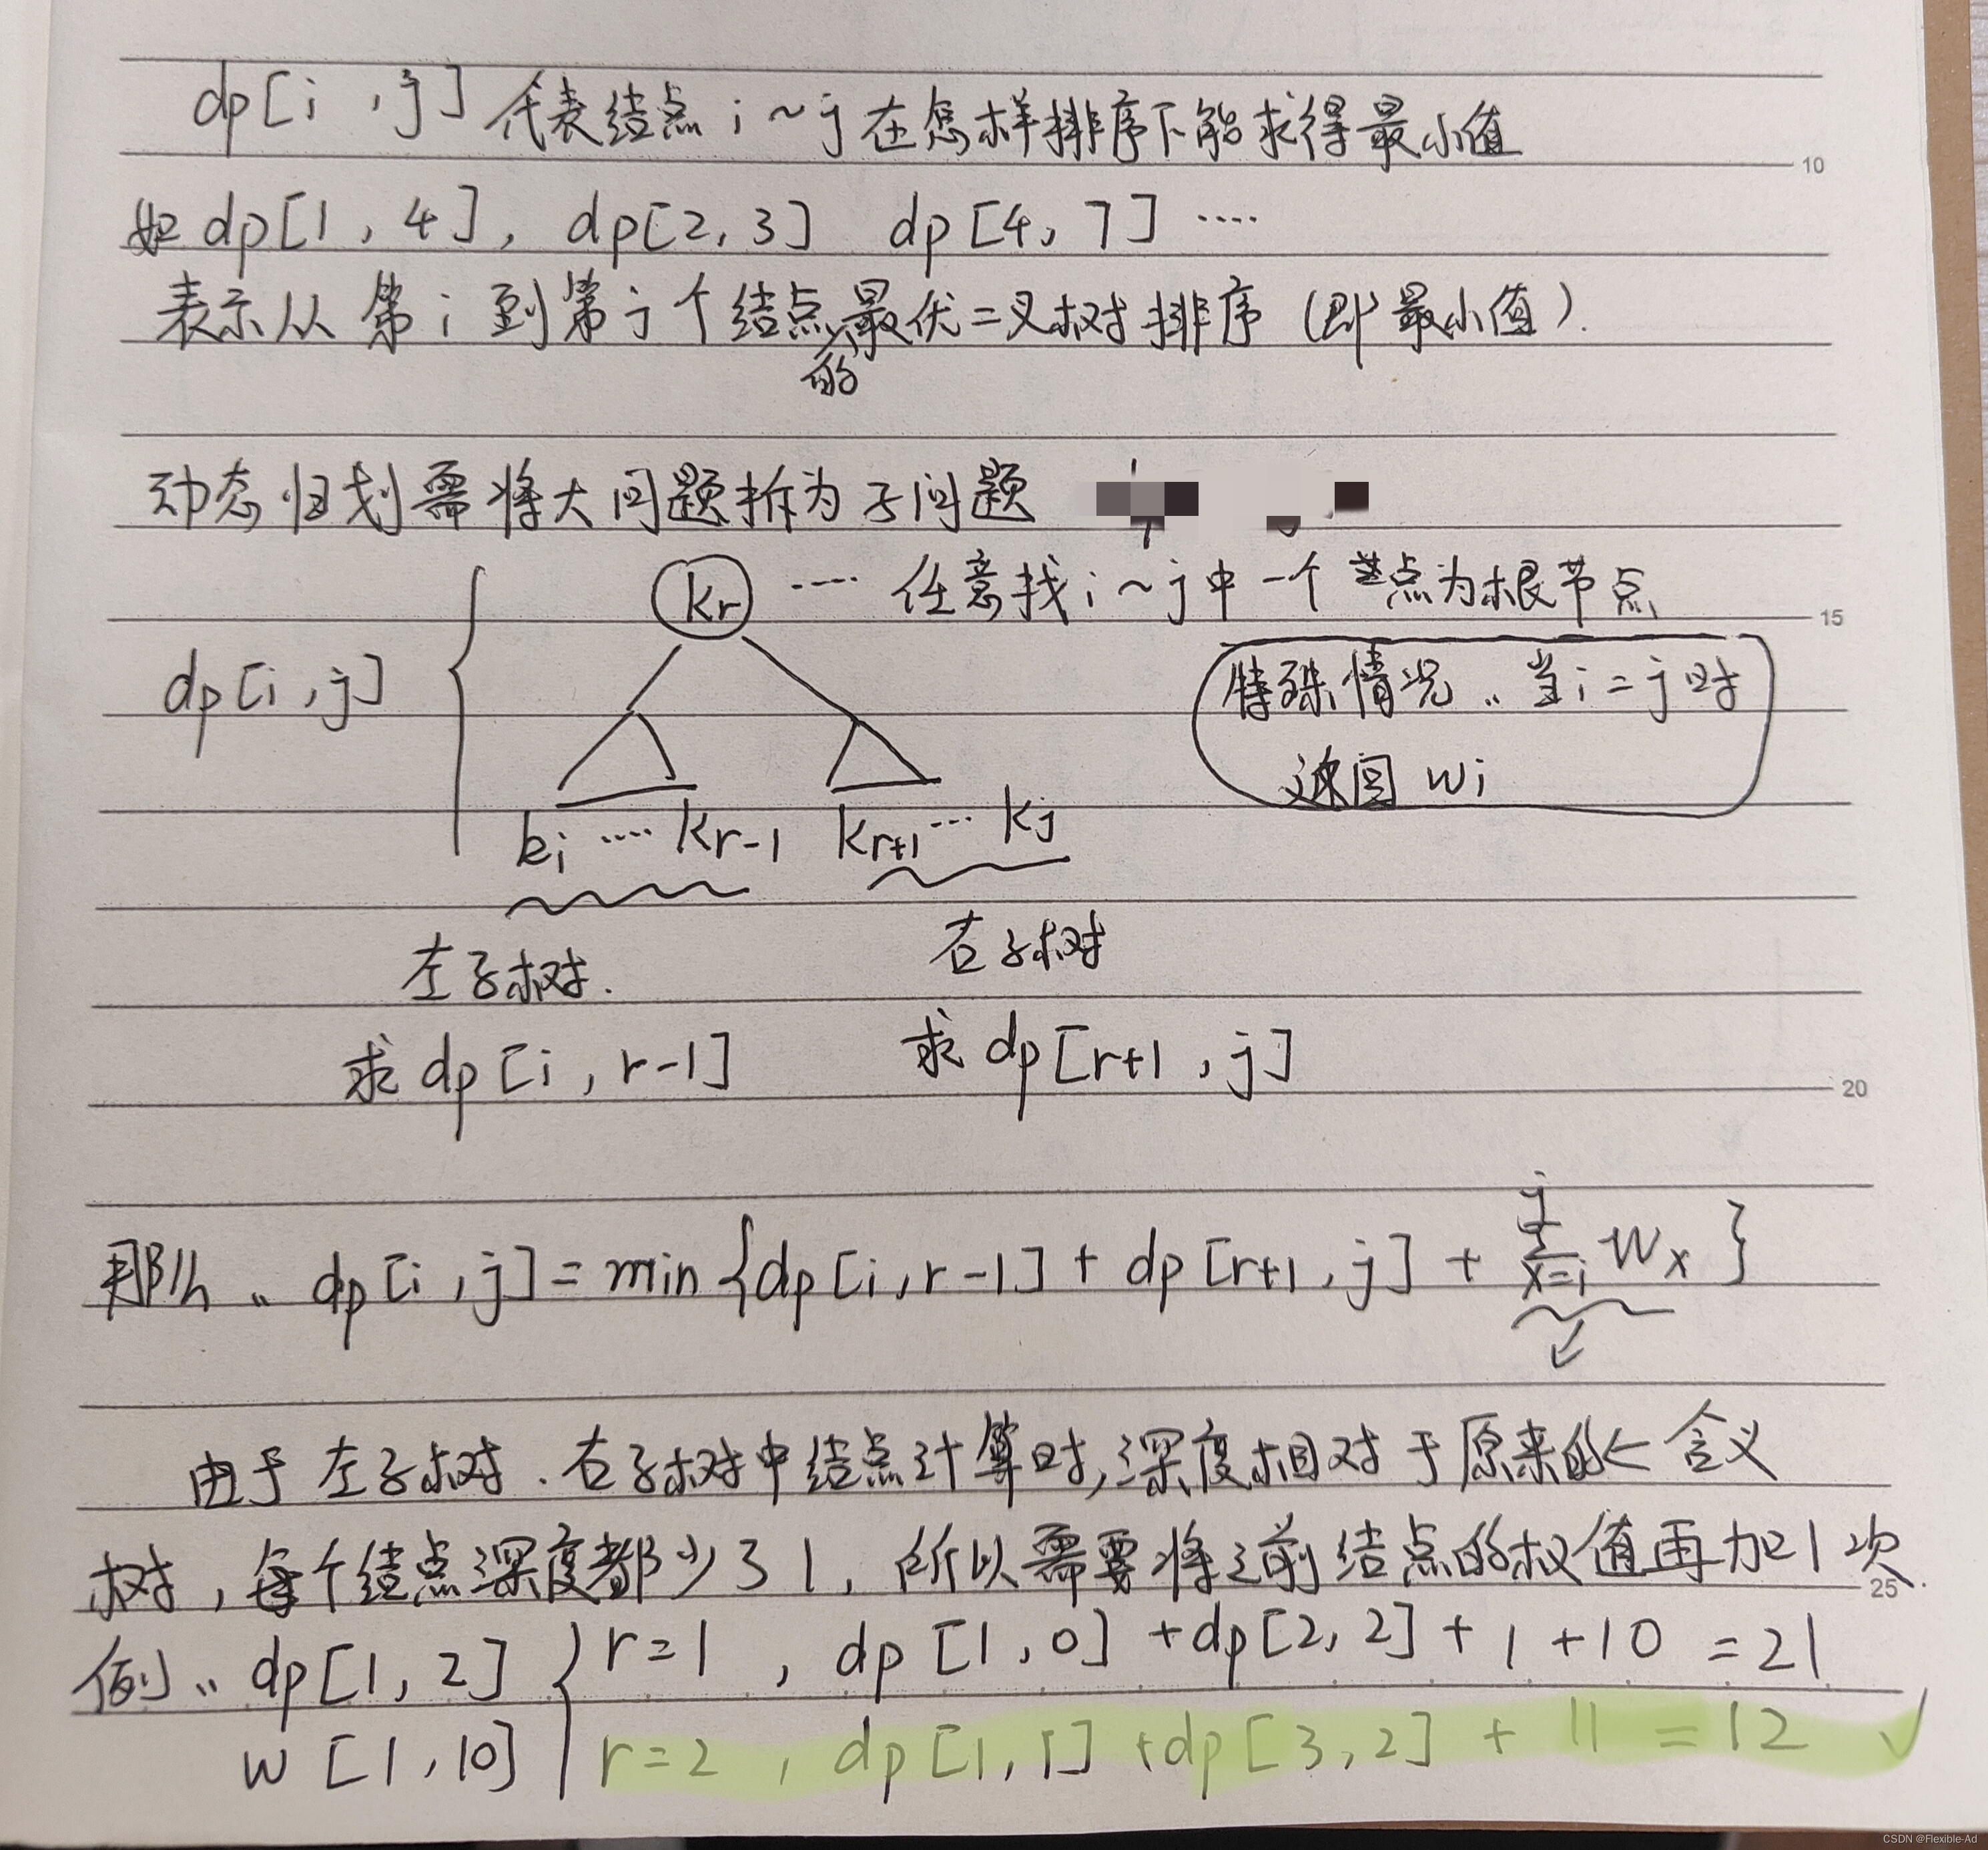 dp[i , j] 代表结点 i ~ j 在怎样排序下能求得最小值
10
如 dp[1 , 4] , dp[2, 3] dp[4, 7] ····
表示从 第 i 到 第 j 个 结点的最优二叉树排序 (即最小值).
动态规划需将大问题拆为子问题
kr ···· 任意找 i ~ j 中 一个 点为根节点
15
dp[i , j]
特殊情况 .. 当 i = j 时
返回 wi
ki ···· kr-1 kr+1 ··· kj
左子树. 右子树
求 dp[i , r-1] 求 dp[r+1 , j]
20
那么 .. dp[i , j] = min {dp[i , r-1] + dp[r+1 , j] + ∑_{x=i}^{j} Wx }
由于 左子树 . 右子树中结点计算时, 深度相对于原来的 ← 含义
树 , 每个结点深度都少了1, 所以需要将之前结点的权值再加1次.
25
例 .. dp[1, 2] { r=1 , dp[1, 0] + dp[2, 2] + 1 + 10 = 21
w [1, 10] r=2 , dp[1, 1] + dp[3, 2] + 11 = 12 ✓
CSDN @Flexible-Ad